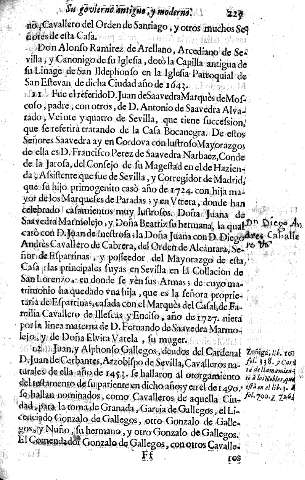 Su govierno antiguo, y moderno. 225
no, Cavallero del Orden de Santiago, y otros muchos Se-
ñores de esta Casa.
Don Alonso Ramirez de Arellano, Arcediano de Se-
villa, y Canonigo de su Iglesia, dotò la Capilla antigua de
su Linage de San Ildephonso en la Iglesia Parroquial de
San Estevan de dicha Ciudad año de 1643.
11 Fue el referido D. Juan de Saavedra Marquès de Mos-
coso, padre, con otros, de D. Antonio de Saavedra Alva-
rado, Veinte y quatro de Sevilla, que tiene succession,
que se referirà tratando de la Casa Bocanegra. De estos
Señores Saavedra ay en Cordova con lustroso Mayorazgos
de ella es D. Francisco Perez de Saavedra Narbaez, Conde
de la Jarosa, del Consejo de su Magestad en el de Hazien-
da, Assistente que fue de Sevilla, y Corregidor de Madrid,
que su hijo primogenito casò año de 1724. con hija ma-
yor de los Marqueses de Paradas; y en Vtrera, donde han
celebrado casamientos muy lustrosos. Doña Juana de
Saavedra Marmolejo, y Doña Beatriz su hermana, la qual
casò con D. Juan de
la Doña Juana con D. Diego
Andrès Cavallero de Cabrera, del Orden de Alcantara, Se-
ñor de Espartinas, y posseedor del Mayorazgo de esta
Casa, las principales suyas en Sevilla en la Collacion de
San Lorenzo, en donde se ven sus Armas; de cuyo ma-
trimonio ha quedado vna hija, que es la señora proprie-
taria de Espartinas, casada con el Marquès del Casal, de Fa-
milia Cavallero de Illescas, y Enciso, año de 1727. nieta
por la linea materna de D. Fernando de Saavedra Marmo-
lejo, y de Doña Elvira Varela, su muger.
12 Juan, y Alphonso Gallegos, deudos del Cardenal
D. Juan de Cerbantes, Arzobispo de Sevilla, Cavalleros na-
turales de ella año de 1453. se hallaron al otorgamiento
del testamento de su pariente en dicho año; y en el de 1490.
se hallan nominados, como Cavalleros de aquella Ciu-
dad, para la toma de Granada, Garcia de Gallegos, el Li-
cenciado Gonzalo de Gallegos, otro Gonzalo de Galle-
gos, y Nuño, su hermano, y otro Gonzalo de Gallegos.
El Comendador Gonzalo de Gallegos, con otros Cavalle-
Ff
ros
Dn Diego An
dres Caballe
ro
Zuñiga, lib. 10.
fol. 338.